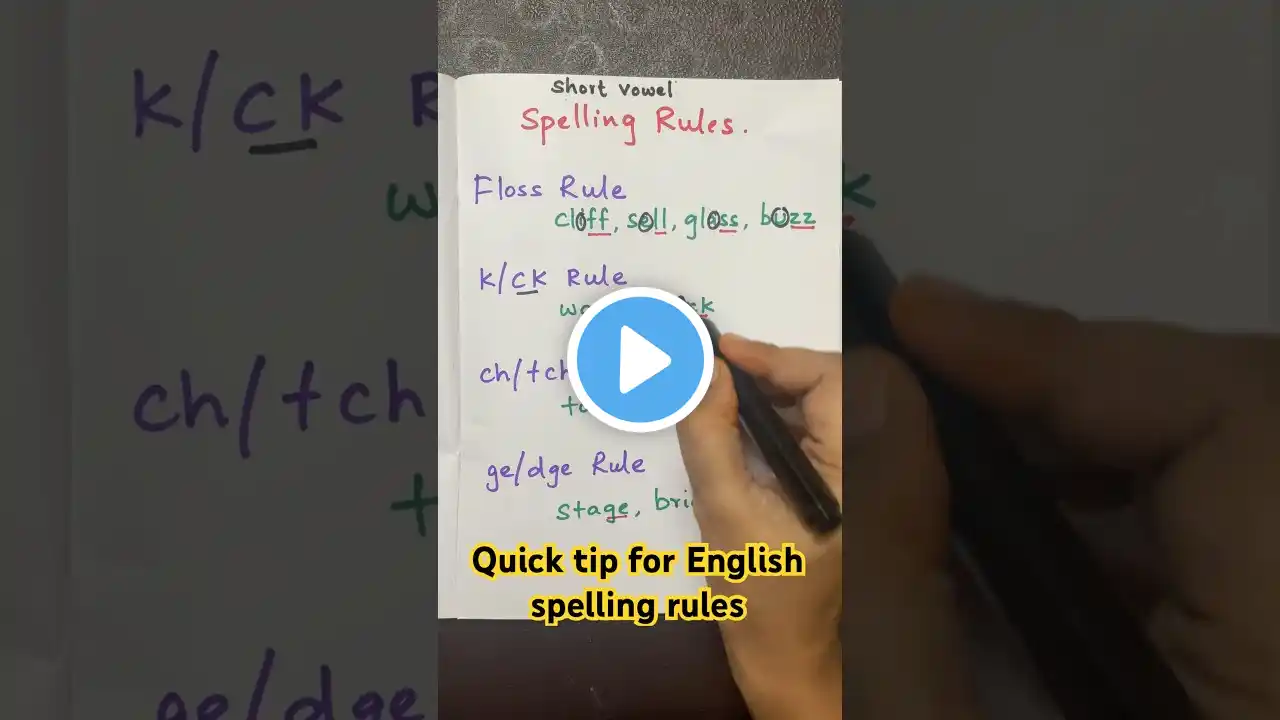 short vowel
Spelling Rules.
Floss Rule
cliff, sell, gloss, buzz
k/ck Rule
ch/tch
ge/dge Rule
stage,
Quick tip for English
spelling rules